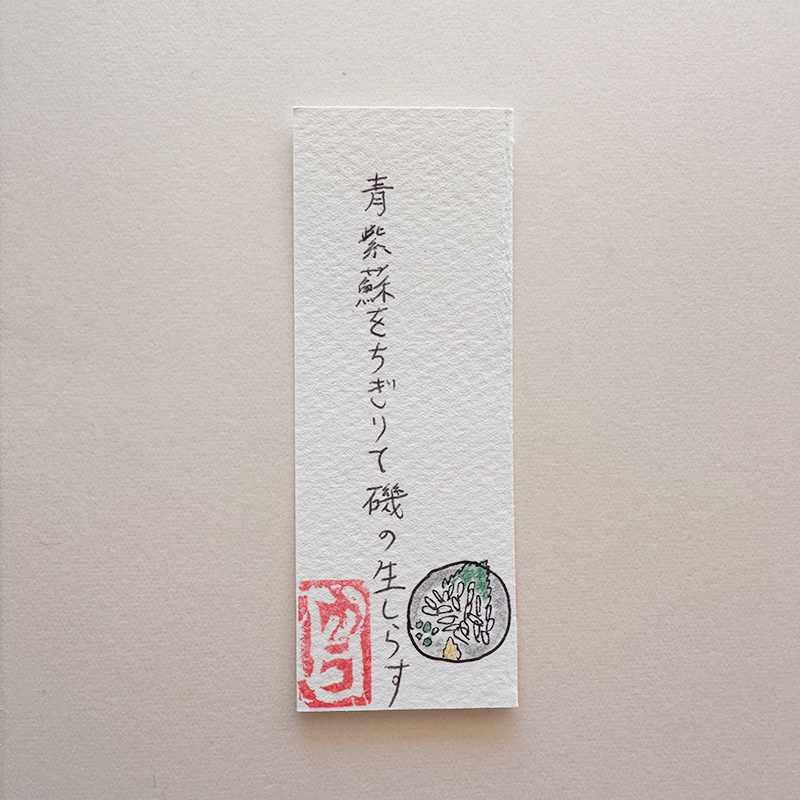 青紫蘇をちぎりて磯の生しらす